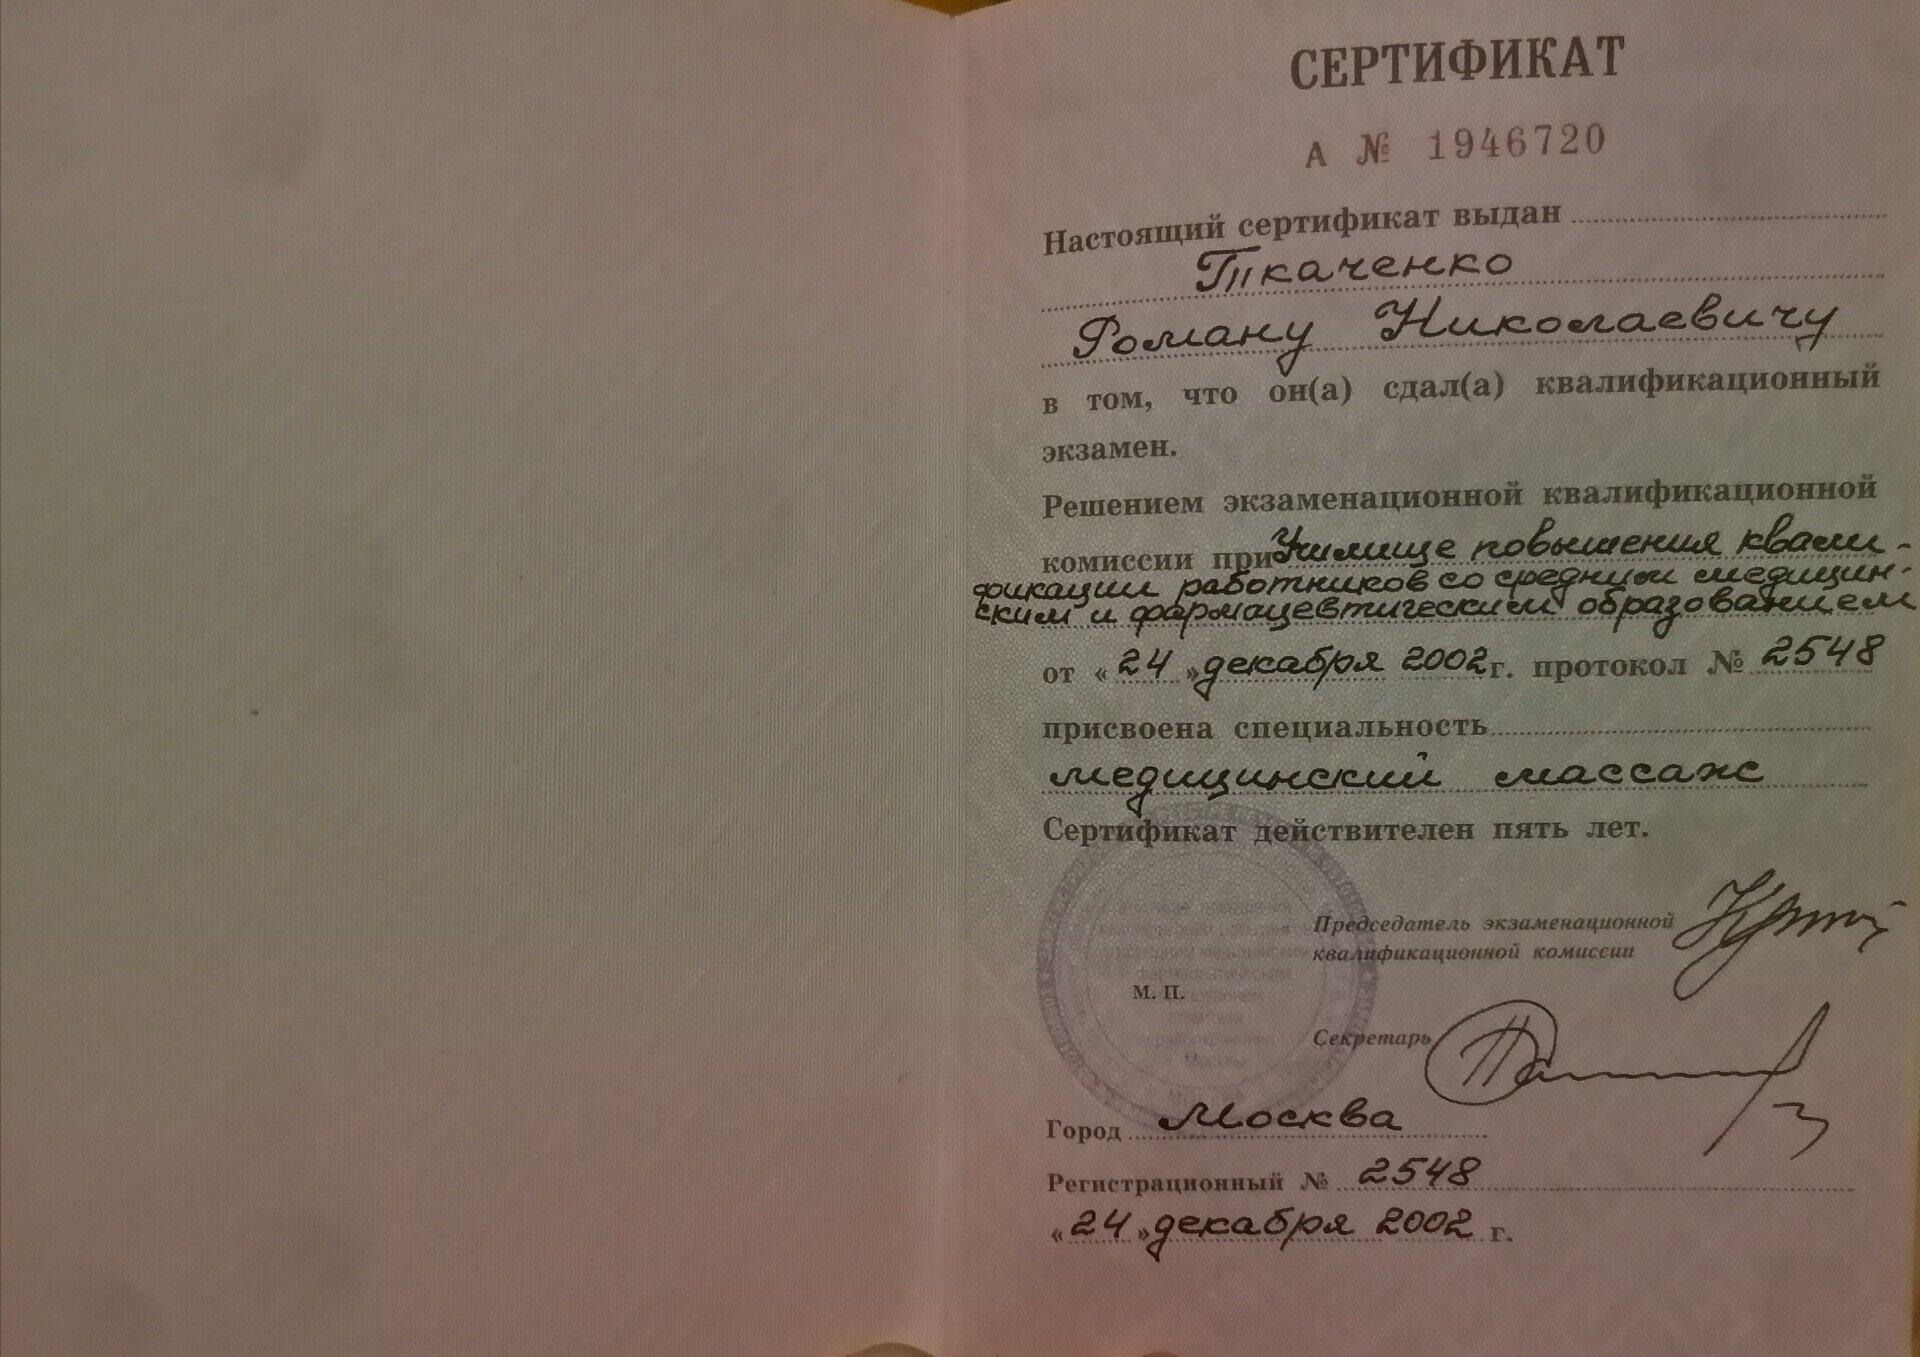 СЕРТИФИКАТ
А № 1946720
Настоящий сертификат выдан
Ткаченко
Роману Николаевичу
в том, что он(а) сдал(а) квалификационный
экзамен.
Решением экзаменационной квалификационной
комиссии при Училище повышения квали-
фикации работников со средним медицин-
ским и фармацевтическим образованием
от «24» декабря 2002 г. протокол № 2548
присвоена специальность
медицинский массаж
Сертификат действителен пять лет.
Председатель экзаменационной
квалификационной комиссии
М. П.
Секретарь
Город Москва
Регистрационный № 2548
«24» декабря 2002 г.